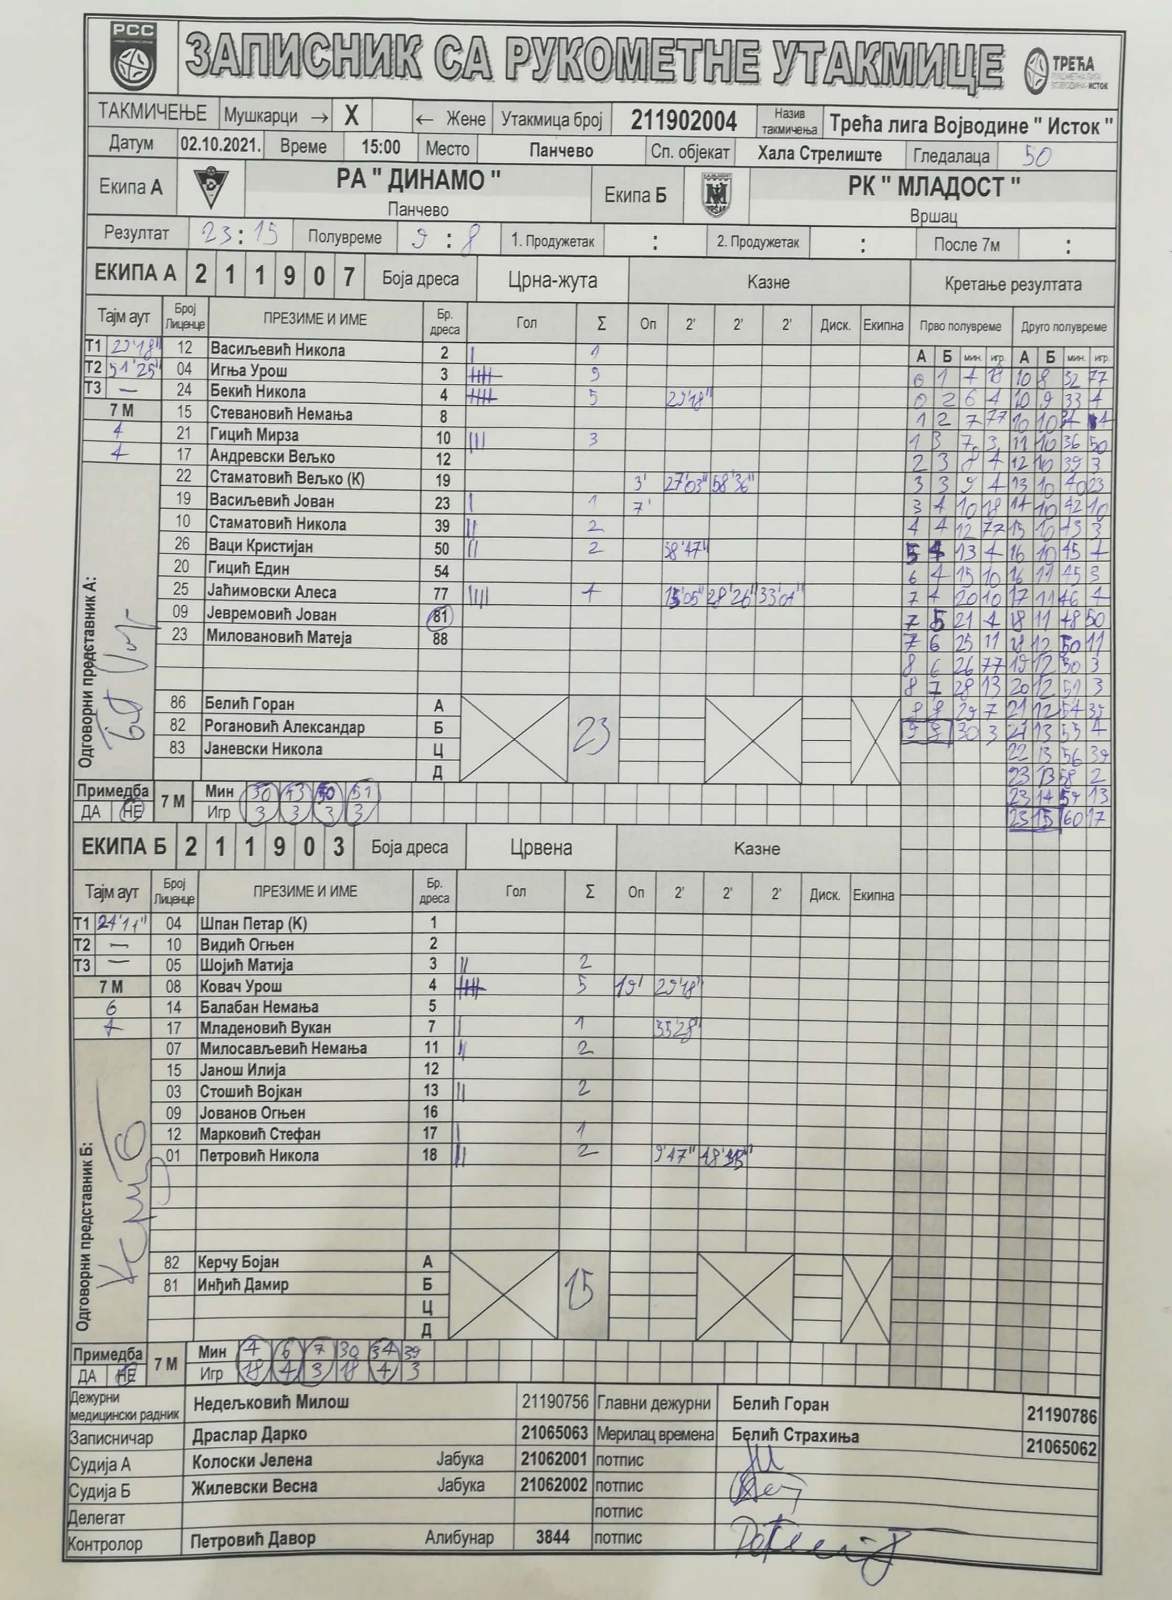 РСС
ЗАПИСНИК СА РУКОМЕТНЕ УТАКМИЦЕ
ТРЕЋА
РУКОМЕТНА ЛИГА
ВОЈВОДИНЕ-ИСТОК
ТАКМИЧЕЊЕ Мушкарци → X ← Жене Утакмица број 211902004 Назив такмичења Трећа лига Војводине " Исток "
Датум 02.10.2021. Време 15:00 Место Панчево Сп. објекат Хала Стрелиште Гледалаца 50
Екипа А РА " ДИНАМО " Екипа Б РК " МЛАДОСТ "
Панчево Вршац
Резултат 23:15 Полувреме 9:8 1. Продужетак : 2. Продужетак : После 7м :
ЕКИПА А 2 1 1 9 0 7 Боја дреса Црна-жута Казне Кретање резултата
Тајм аут Број Лиценце ПРЕЗИМЕ И ИМЕ Бр. дреса Гол Σ Оп 2' 2' 2' Диск. Екипна Прво полувреме Друго полувреме
А Б мин. игр. А Б мин. игр.
Т1 12 Васиљевић Никола 2 1
Т2 51'25" 04 Игња Урош 3 9
Т3 — 24 Бекић Никола 4 5 29'18"
7 М 15 Стевановић Немања 8
4 21 Гицић Мирза 10 3
4 17 Андревски Вељко 12
22 Стаматовић Вељко (К) 19 3' 27'03" 58'36"
19 Васиљевић Јован 23 1 7'
10 Стаматовић Никола 39 2
26 Ваци Кристијан 50 2 38'47"
20 Гицић Един 54
25 Јаћимовски Алеса 77 4 28'26" 33'01"
09 Јевремовић Јован 81
23 Миловановић Матеја 88
Одговорни представник А:
86 Белић Горан А
82 Рогановић Александар Б 23
83 Јаневски Никола Ц
Д
0 1 4 18 10 8 32 77
0 2 6 4 10 9 33 4
1 2 7 77 10 10 34
1 3 7 3 11 10 36 50
2 3 8 4 12 10 39 3
3 3 9 4 13 10 40 23
3 4 10 18 14 10 42 10
4 4 12 77 15 10 43 3
5 4 13 4 16 10 45 4
6 4 15 10 16 11 45 3
7 4 20 10 17 11 46 4
7 5 21 4 18 11 48 50
7 6 25 11 18 12 50 11
8 6 26 77 19 12 50 3
8 7 28 13 20 12 51 3
8 8 29 7 21 12 54 39
30 3 21 13 55 4
22 13 56 39
23 13 58 2
23 14 59 13
23 15 60 17
Примедба 7 М Мин 30 43 50 51
ДА НЕ Игр 3 3 3 3
ЕКИПА Б 2 1 1 9 0 3 Боја дреса Црвена Казне
Тајм аут Број Лиценце ПРЕЗИМЕ И ИМЕ Бр. дреса Гол Σ Оп 2' 2' 2' Диск. Екипна
Т1 24'11" 04 Шпан Петар (К) 1
Т2 — 10 Видић Огњен 2
Т3 — 05 Шојић Матија 3 2
7 М 08 Ковач Урош 4 5 19' 29'18"
6 14 Балабан Немања 5
4 17 Младеновић Вукан 7 1 35'28"
07 Милосављевић Немања 11 2
15 Јанош Илија 12
03 Стошић Војкан 13 2
09 Јованов Огњен 16
12 Марковић Стефан 17 1
01 Петровић Никола 18 2 9'47"
Одговорни представник Б:
82 Керчу Бојан А
81 Инђић Дамир Б 15
Ц
Д
Примедба 7 М Мин 4 6 7 30 34 39
ДА НЕ Игр 18 4 3 18 4 3
Дежурни медицински радник Недељковић Милош 21190756 Главни дежурни Белић Горан 21190786
Записничар Драслар Дарко 21065063 Мерилац времена Белић Страхиња 21065062
Судија А Колоски Јелена Јабука 21062001 потпис
Судија Б Жилевски Весна Јабука 21062002 потпис
Делегат потпис
Контролор Петровић Давор Алибунар 3844 потпис